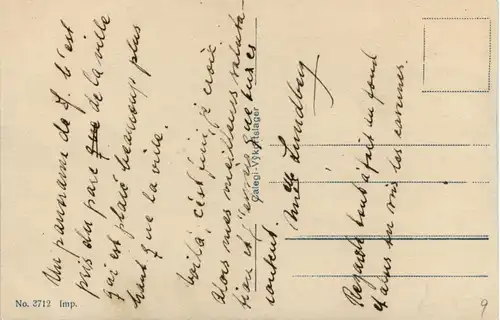 Un panorama de J. C'est
pris du parc de la ville
qui est placé beaucoup plus
haut que la ville.
Voilà, c'est fini, je crois
alors mes meilleures saluta-
tion et j'espère que tu es
content.
Mlle Lundberg
Regarde tout à fait au fond
et alors tu vois les
Calegi-Vykortslager
No. 3712 Imp.
9